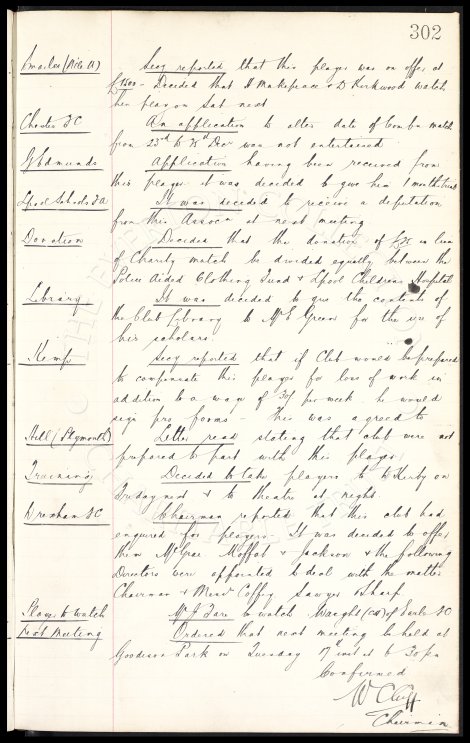 302
Secy reported that this player was on offer at
£1500 - Decided that H Makepeace & D Kirkwood watch
him play on Sat next
Chester FC An application to alter date of Comb'n match
from 23rd to 25th Decr was not entertained
G Edmunds Application having been received from
this player it was decided to give him 1 month trial
Lpool Schools FA It was decided to receive a deputation
from this Assocn at next meeting
Donation Decided that the donation of in lieu
of Charity match be divided equally between the
Police Aided Clothing Fund & Lpool Childrens Hospital
Library It was decided to give the contents of
the Club Library to Mr E Green for the use of
his scholars
Kemp Secy reported that if Club would be prepared
to compensate this player for loss of work in
addition to a wage of 30/ per week he would
sign pro forms - this was agreed to
Hill (Plymouth) Letter read stating that club were not
prepared to part with this player
Training Decided to take players to W Kirby on
Tuesday next & to theatre at night.
Wrexham FC Chairman reported that this club had
enquired for players - It was decided to offer
them McGrae Moffat & Jackson & the following
Directors were appointed to deal with the matter
Chairman & Messrs Coffey Sawyer Sharp
Plays to watch Mr J Fare to watch (CF) of Earle FC
Next Meeting Ordered that next meeting be held at
Goodison Park on Tuesday 17th inst at 5.30 pm
Confirmed
W C Cuff
Chairman